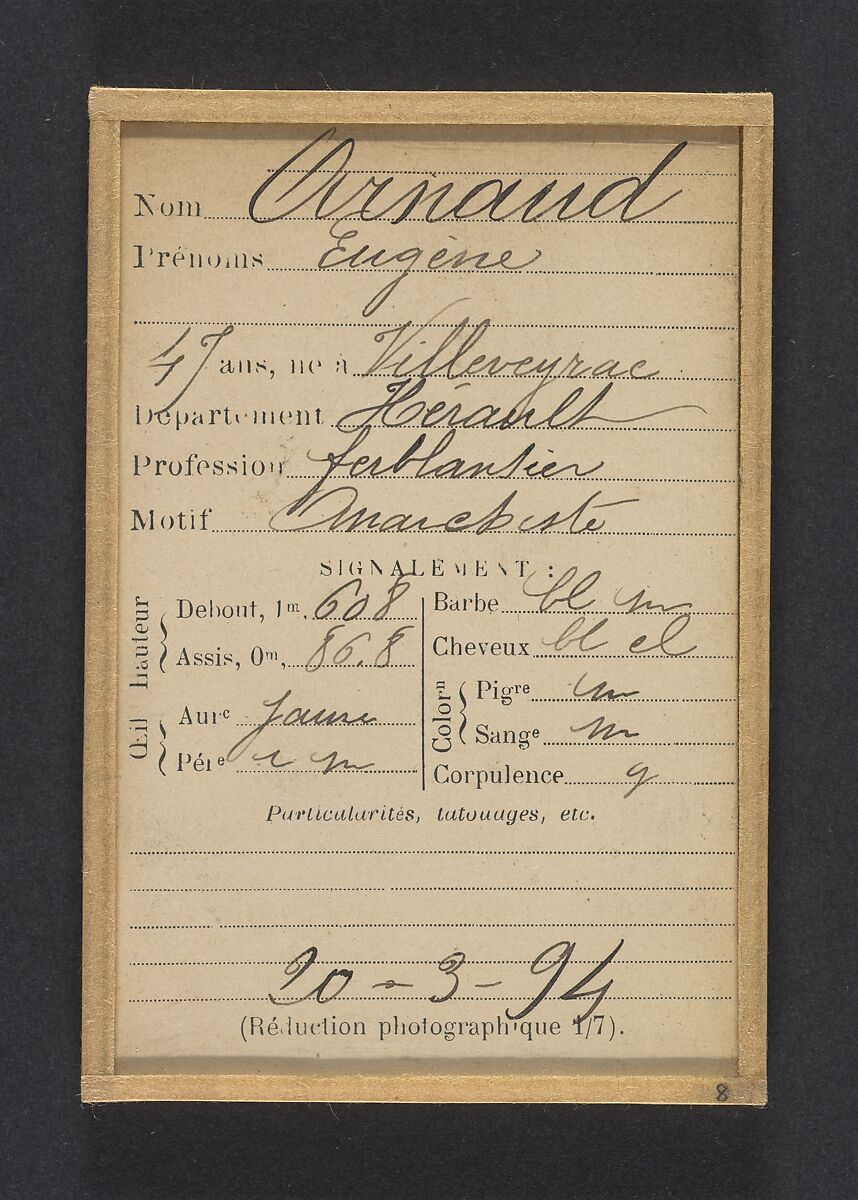 Nom Arnaud
Prénoms Eugène
47 ans, né à Villeveyrac
Département Hérault
Profession ferblantier
Motif Anarchiste
SIGNALEMENT :
hauteur
Debout, 1m, 608
Assis, 0m, 86.8
Œil
Aurc jaune
Pére m
Barbe bl m
Cheveux bl cl
Colorn
Pigre m
Sange m
Corpulence g
Particularités, tatouages, etc.
20 = 3 - 94
(Réduction photographique 1/7).
8